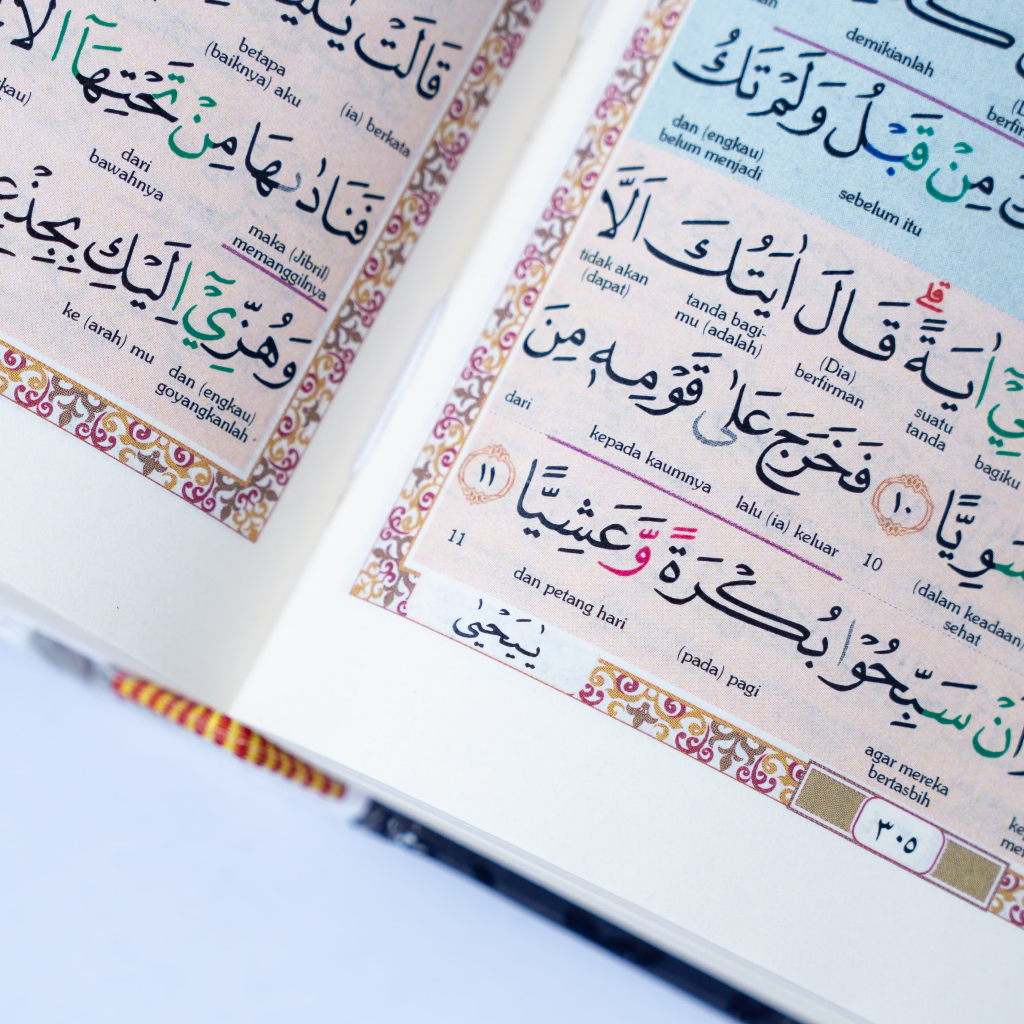 demikianlah
مِنْ قَبْلُ وَلَمْ تَكُ
sebelum itu
dan (engkau)
belum menjadi
اٰيَةً ۗ قَالَ اٰيَتُكَ اَلَّا
bagiku
suatu
tanda
(Dia)
berfirman
tanda bagi-
mu (adalah)
tidak akan
(dapat)
سَوِيًّا ١٠ فَخَرَجَ عَلٰى قَوْمِهٖ مِنَ
(dalam keadaan)
sehat
10
lalu (ia) keluar
kepada kaumnya
dari
اَنْ سَبِّحُوْا بُكْرَةً وَّعَشِيًّا ١١
agar mereka
bertasbih
(pada) pagi
dan petang hari
11
يٰيَحْيٰى
٣٠٥
قَالَتْ
(ia) berkata
betapa
(baiknya) aku
فَنَادٰىهَا مِنْ تَحْتِهَآ
maka (Jibril)
memanggilnya
dari
bawahnya
وَهُزِّيْٓ اِلَيْكِ بِجِذْعِ
dan (engkau)
goyangkanlah
ke (arah) mu